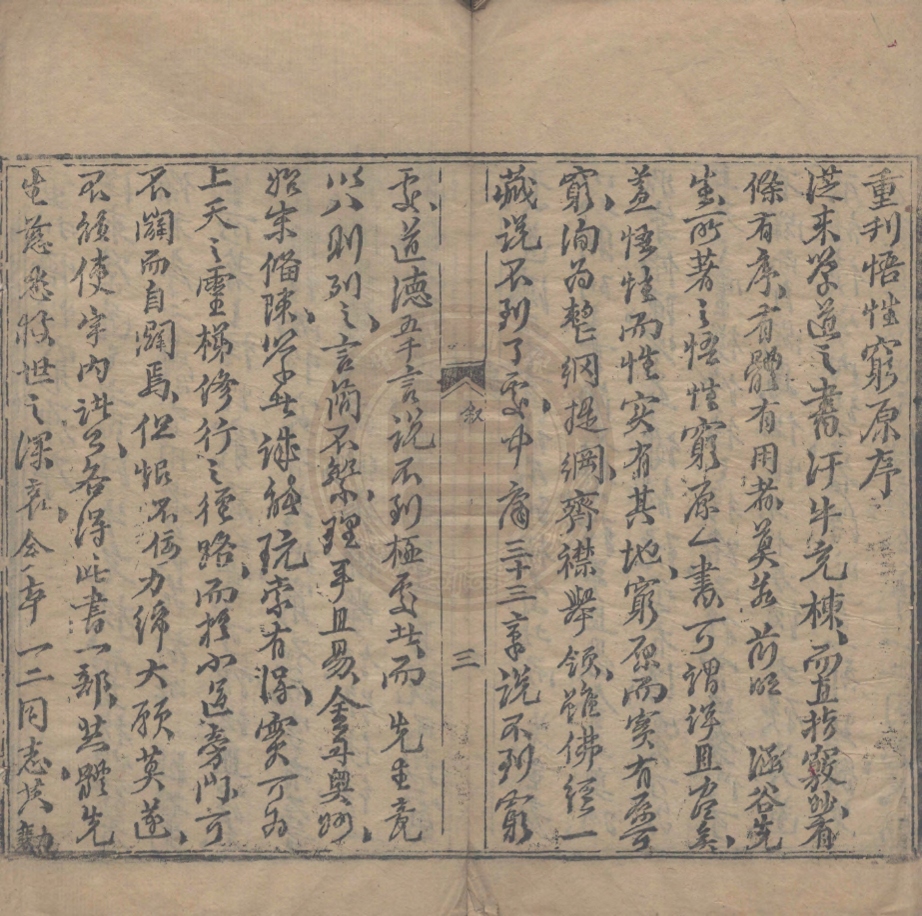 重刊悟性窮原序
從來學道之書汗牛充棟而直指竅妙有
條有序有體有用者莫若前明　涵谷先
生所著之悟性窮原一書可謂詳且盡矣
蓋悟性而性實有其地窮原而實有原可
窮洵為整網提綱齊襟舉領雖佛經一
藏說不到了處中庸三十三章說不到窮
敘
三
處道德五千言說不到極處此而　先生竟
以八則列之言簡不繁理平且易金丹奧妙
始末備陳學者誠能玩索有得實可為
上天之靈梯修行之徑路而於小道旁門可
不闢而自闢焉但恨不佞力綿大願莫遂
不能使宇內諸公各得此書一部共體先
生慈悲救世之深衷今年一二同志共勷